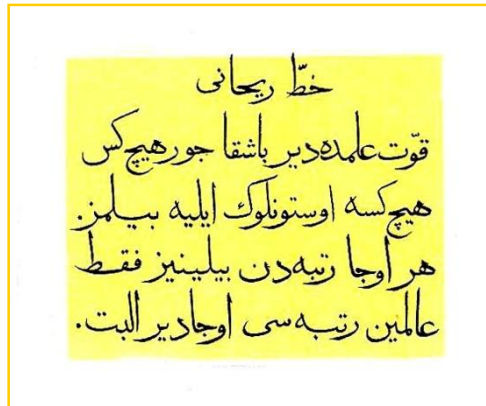 خطّ ریحانی
قوّت علمده‌دیر باشقا جور هیچ‌کس
هیچ‌کسه اوستونلوك ایلیه بیلمز.
هر اوجا رتبه‌دن بیلینیز فقط
عالمین رتبه‌سی اوجادیر البت.